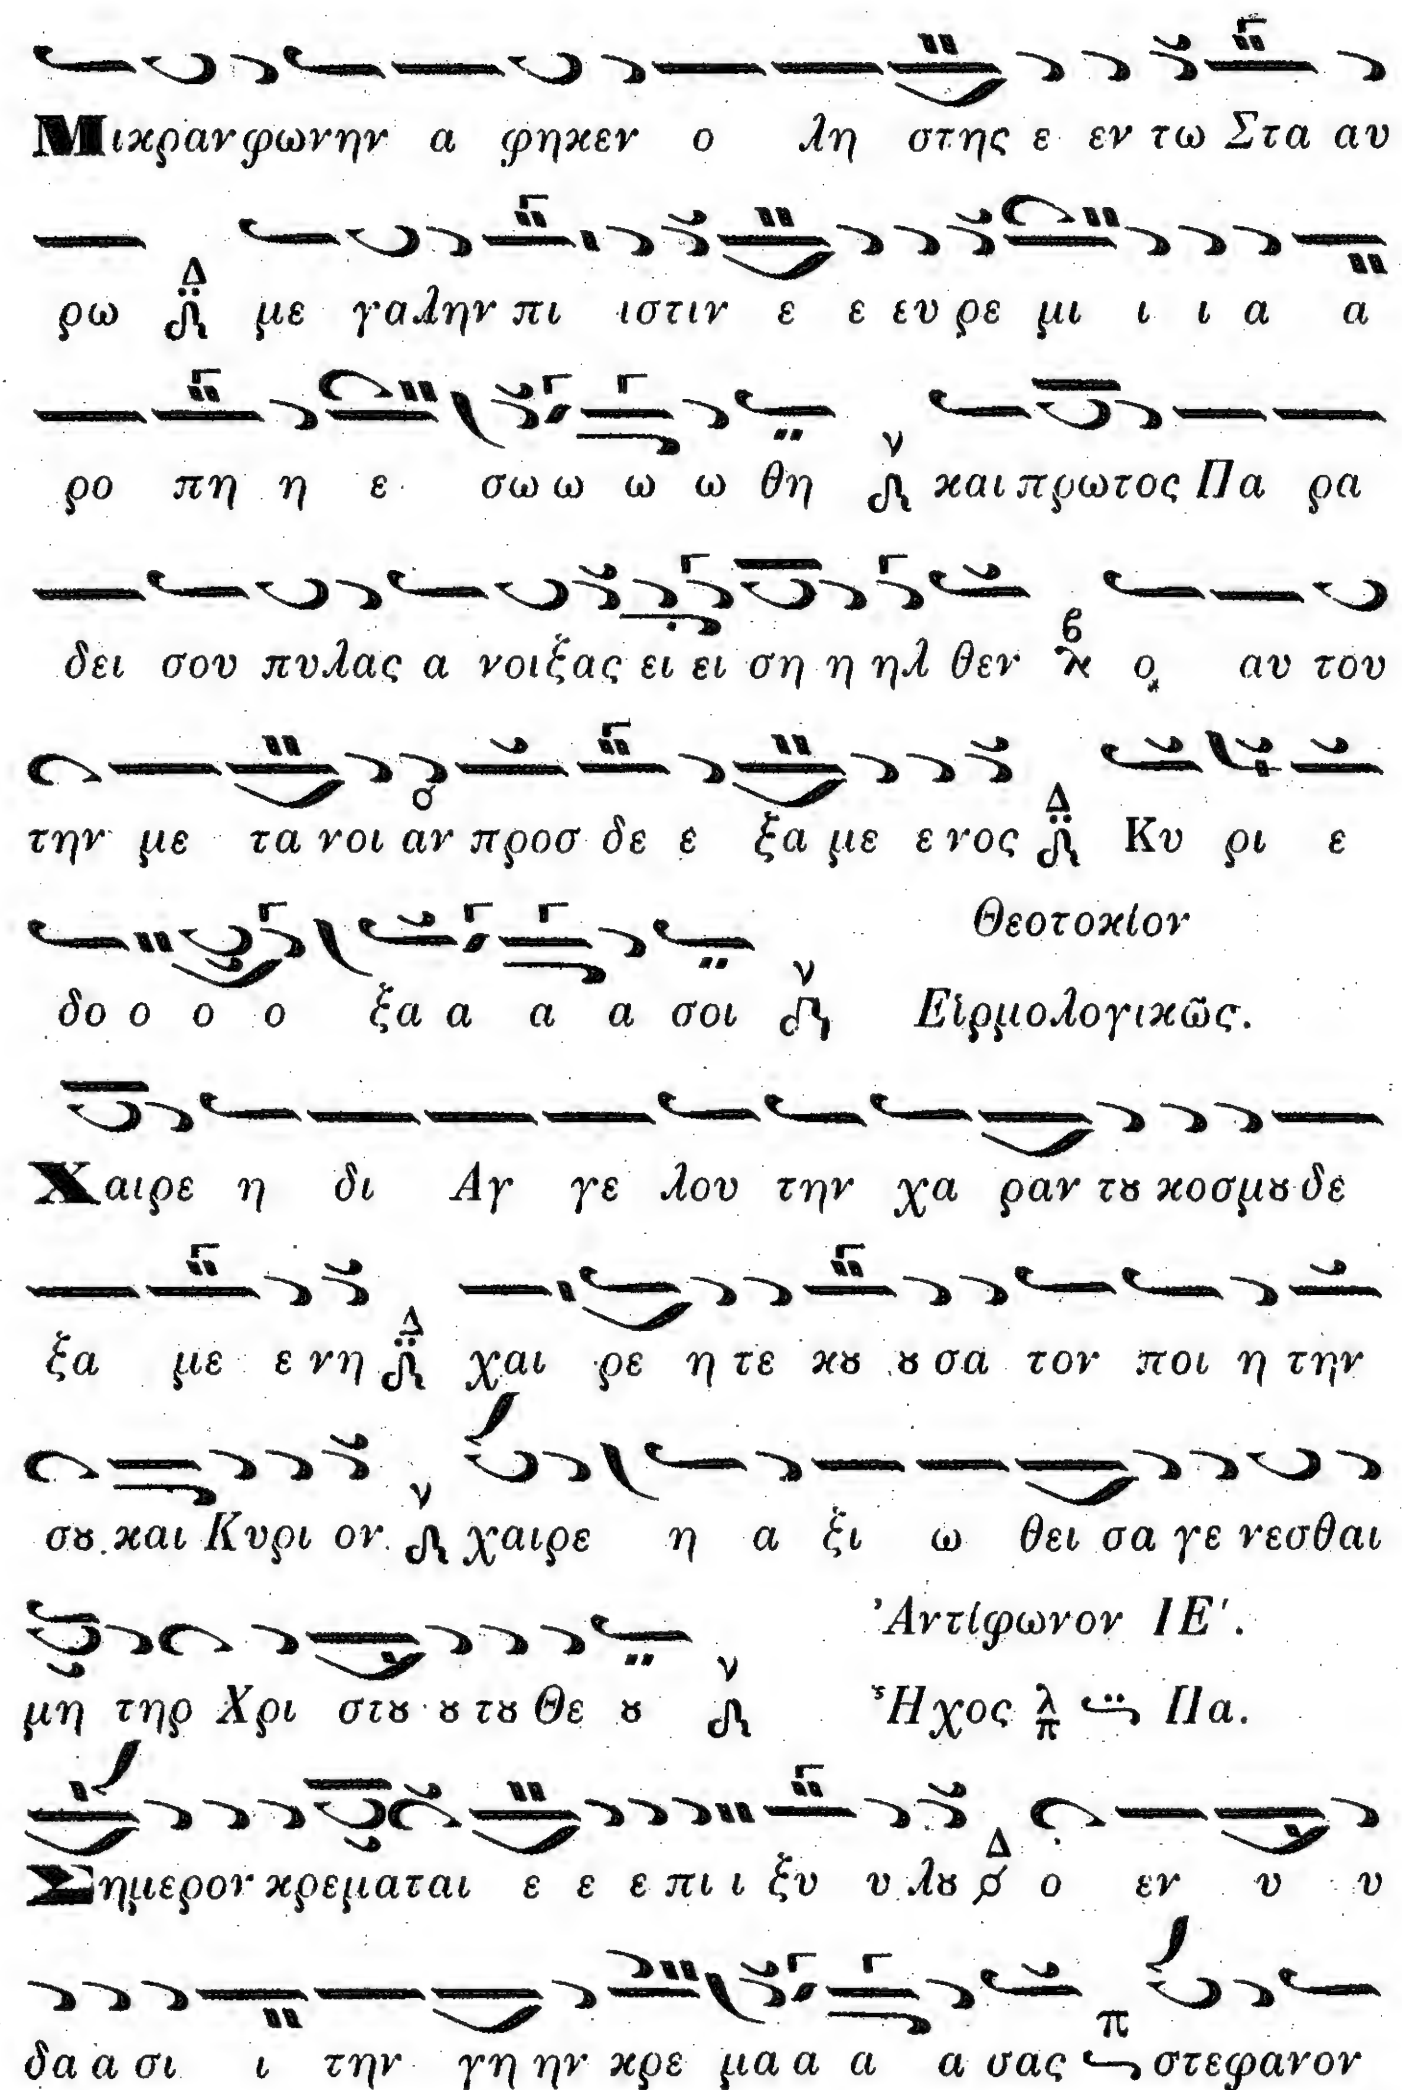 Μικρανφωνην α φηκεν ο λη στης ε εν τω Στα αυ
ρω Δ με γαλην πι ιστιν ε ε ευ ρε μι ι ι α α
ρο πη η ε σω ω ω ω θη ν και πρωτος Πα ρα
δει σου πυλας α νοιξας ει ει ση η ηλ θεν ϐ ο αυ του
την με τα νοι αν προσ δε ε ξα με ε νος Δ Κυ ρι ε
Θεοτοκίον
δο ο ο ο ξα α α α σοι ν Εἱρμολογικῶς.
Χαιρε η δι Αγ γε λου την χα ραν τȣ κοσμȣ δε
ξα με ε νη Δ χαι ρε η τε κȣ ȣ σα τον ποι η την
σȣ και Κυρι ον ν χαιρε η α ξι ω θει σα γε νεσθαι
Ἀντίφωνον ΙΕ΄.
μη τηρ Χρι στȣ ȣ τȣ Θε ȣ ν Ἦχος λ π Πα.
Σημερον κρεμαται ε ε ε πι ι ξυ υ λȣ Δ ο εν υ υ
δα α σι ι την γη ην κρε μα α α α σας π στεφανον